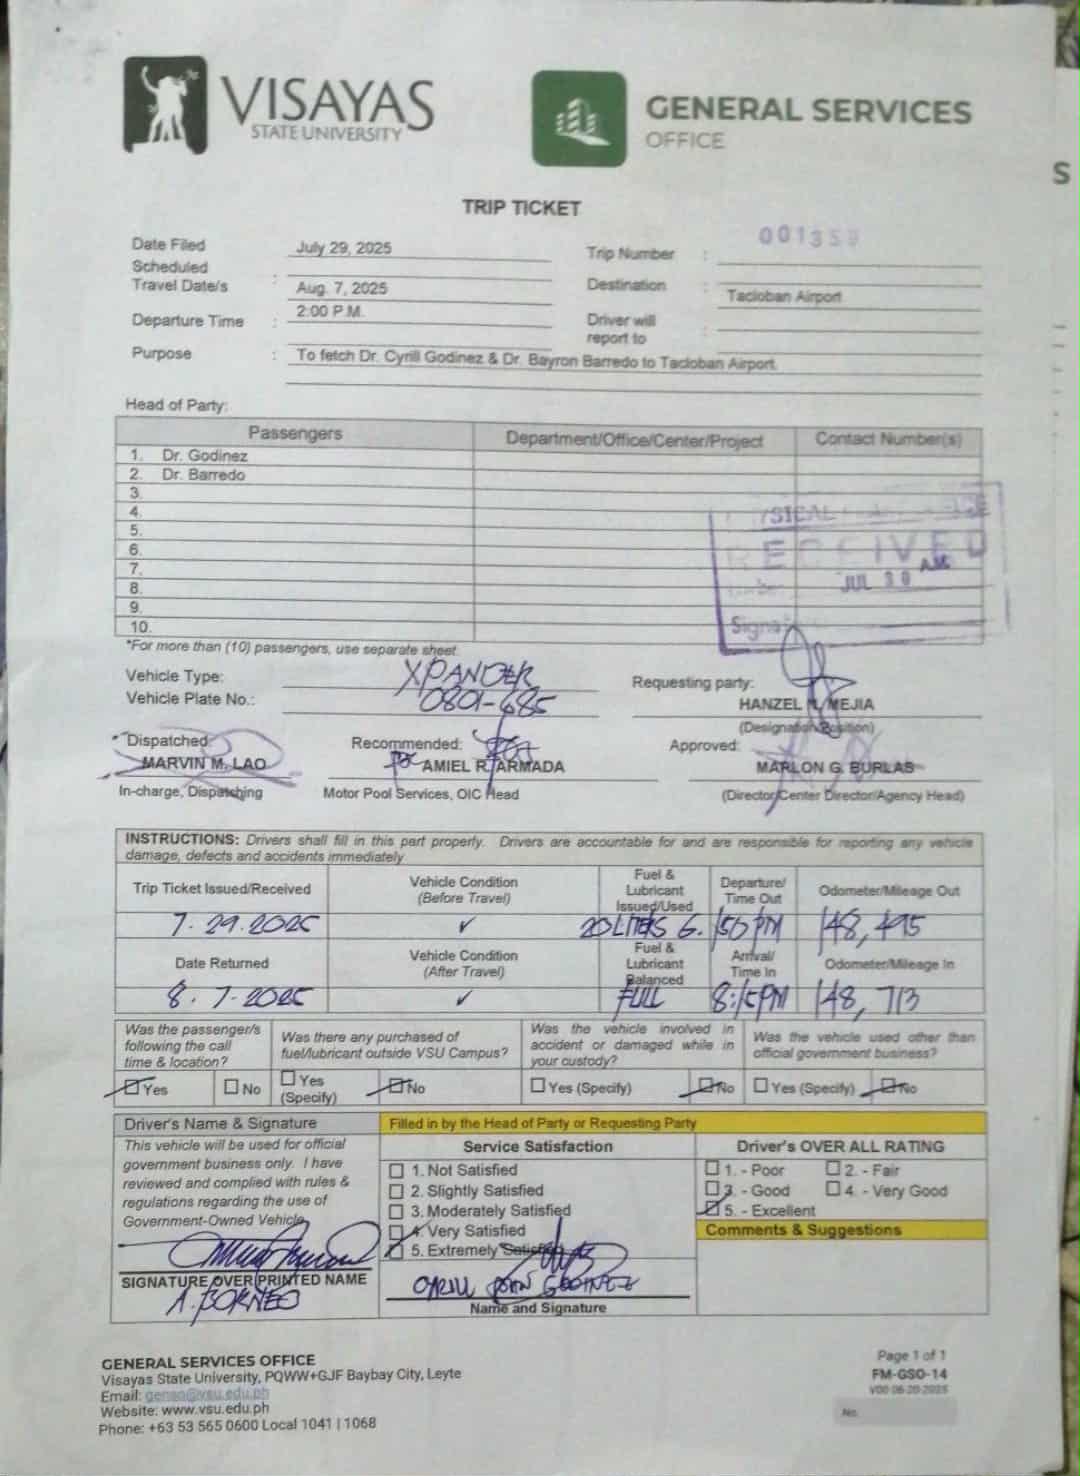 VISAYAS
STATE UNIVERSITY
GENERAL SERVICES
OFFICE
S
TRIP TICKET
Date Filed July 29, 2025
Trip Number : 001359
Scheduled
Travel Date/s : Aug. 7, 2025
Destination : Tacloban Airport
Departure Time : 2:00 P.M.
Driver will
report to :
Purpose : To fetch Dr. Cyrill Godinez & Dr. Bayron Barredo to Tacloban Airport.
Head of Party:
Passengers Department/Office/Center/Project Contact Number(s)
1. Dr. Godinez
2. Dr. Barredo
3.
4.
5.
6.
7.
8.
9.
10.
RECEIVED
JUL 30 AM
*For more than (10) passengers, use separate sheet.
Vehicle Type: XPANDER
Vehicle Plate No.: 0801-685
Requesting party:
HANZEL MEJIA
(Designation/Position)
Dispatched:
MARVIN M. LAO
In-charge, Dispatching
Recommended:
AMIEL R. ARMADA
Motor Pool Services, OIC Head
Approved:
MARLON G. BURLAS
(Director/Center Director/Agency Head)
INSTRUCTIONS: Drivers shall fill in this part properly. Drivers are accountable for and are responsible for reporting any vehicle
damage, defects and accidents immediately
Trip Ticket Issued/Received
Vehicle Condition
(Before Travel)
Fuel &
Lubricant
Issued/Used
Departure/
Time Out
Odometer/Mileage Out
7.29.2025 ✓ 20 LITERS G. 150 PM 148,495
Date Returned
Vehicle Condition
(After Travel)
Fuel &
Lubricant
Balanced
Arrival/
Time In
Odometer/Mileage In
8.7-2025 ✓ FULL 8:15PM 148,713
Was the passenger/s
following the call
time & location?
Was there any purchased of
fuel/lubricant outside VSU Campus?
Was the vehicle involved in
accident or damaged while in
your custody?
Was the vehicle used other than
official government business?
☑ Yes ☐ No
☐ Yes
(Specify)
☑ No
☐ Yes (Specify) ☑ No
☐ Yes (Specify) ☑ No
Driver's Name & Signature
Filled in by the Head of Party or Requesting Party
This vehicle will be used for official
government business only. I have
reviewed and complied with rules &
regulations regarding the use of
Government-Owned Vehicle.
SIGNATURE OVER PRINTED NAME
A. BORNEO
Service Satisfaction
☐ 1. Not Satisfied
☐ 2. Slightly Satisfied
☐ 3. Moderately Satisfied
☐ 4. Very Satisfied
☑ 5. Extremely Satisfied
CYRILL JOHN GODINEZ
Name and Signature
Driver's OVER ALL RATING
☐ 1. - Poor ☐ 2. - Fair
☐ 3. - Good ☐ 4. - Very Good
☑ 5. - Excellent
Comments & Suggestions
GENERAL SERVICES OFFICE
Visayas State University, PQWW+GJF Baybay City, Leyte
Email: genso@vsu.edu.ph
Website: www.vsu.edu.ph
Phone: +63 53 565 0600 Local 1041 | 1068
Page 1 of 1
FM-GSO-14
V00 06-20-2025
No.